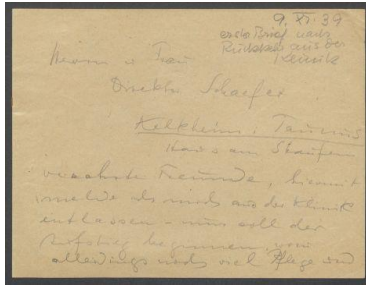 9. XI. 39
erste Brief nach
Rückkehr aus der
Klinik
Herrn u Frau
Direktor Schaefer
Kelkheim i. Taunus
Haus am Staufen
verehrte Freunde, hiermit
melde ich mich aus der Klinik
entlassen – nun soll der
Aufstieg beginnen, wozu
allerdings noch viel Pflege und